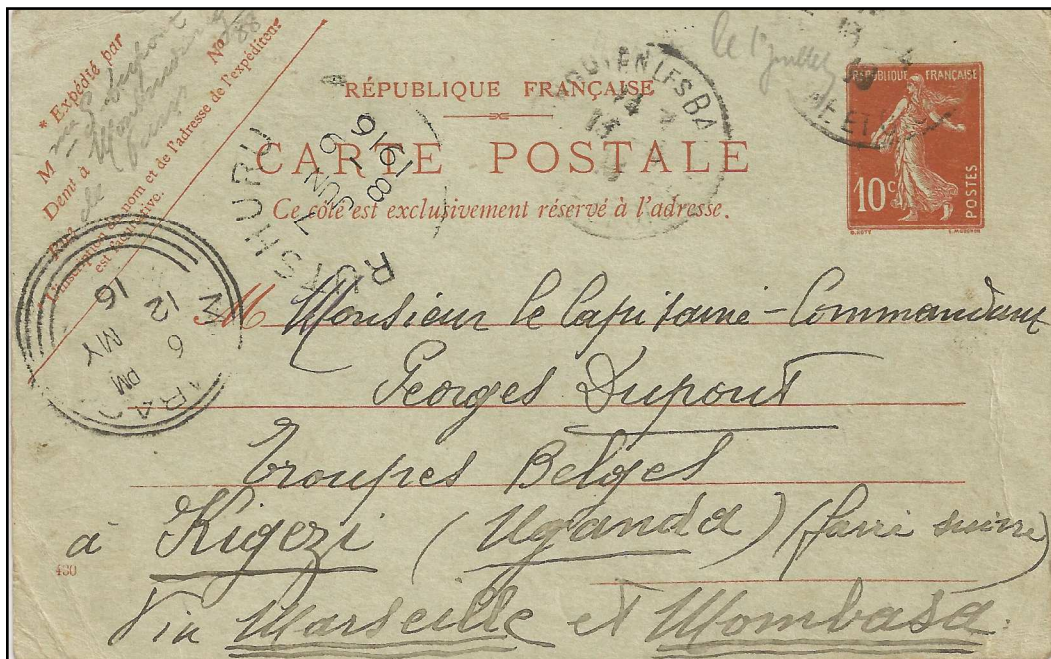 * Expédié par
M
Demt à
Rue de Nº 88
L'inscription du nom et de l'adresse de l'expéditeur
est facultative.
le 1er juillet
RÉPUBLIQUE FRANÇAISE
CARTE POSTALE
Ce côté est exclusivement réservé à l'adresse.
RÉPUBLIQUE FRANÇAISE
10c
POSTES
RUTSHURU
7 JUIN
1916
6 PM
12 MY
16
M Monsieur le Capitaine-Commandant
Georges Dupont
Troupes Belges
à Kigezi (Uganda) (faire suivre)
430
Via Marseille et Mombasa.